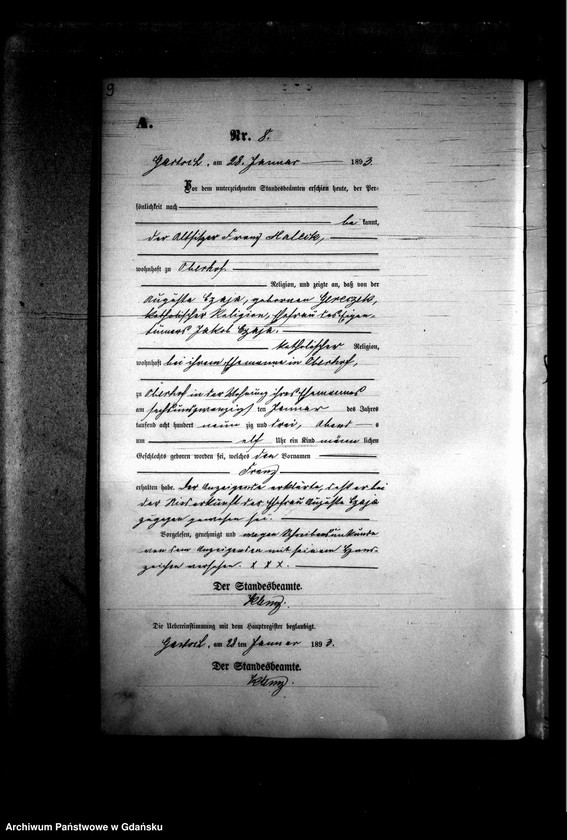 9
A.
Nr. 8.
am 28. Januar 1893.
Vor dem unterzeichneten Standesbeamten erschien heute, der Per-
sönlichkeit nach
be kannt,
der Altsitzer Franz Malleck,
wohnhaft zu Oberhof.
Religion, und zeigte an, daß von der
Auguste Czaja, geborenen
katholischer Religion, Ehefrau des Eigen-
tümers Jakob Czaja.
katholischer Religion,
wohnhaft bei ihrem Ehemanne in Oberhof,
zu Oberhof in der Wohnung ihres Ehemannes
am sechsundzwanzigsten Januar des Jahres
tausend acht hundert neun zig und drei, Abends
um elf Uhr ein Kind männ lichen
Geschlechts geboren worden sei, welches den Vornamen
Franz
erhalten habe. Der Anzeigende erklärte, daß er bei
der Niederkunft der Ehefrau Auguste Czaja
zugegen gewesen sei.
Vorgelesen, genehmigt und wegen Schreibensunkunde
von dem Anzeigenden mit seinem Hand-
zeichen versehen. X X X.
Der Standesbeamte.
Die Uebereinstimmung mit dem Hauptregister beglaubigt.
am 28 ten Januar 1893.
Der Standesbeamte.
Archiwum Państwowe w Gdańsku